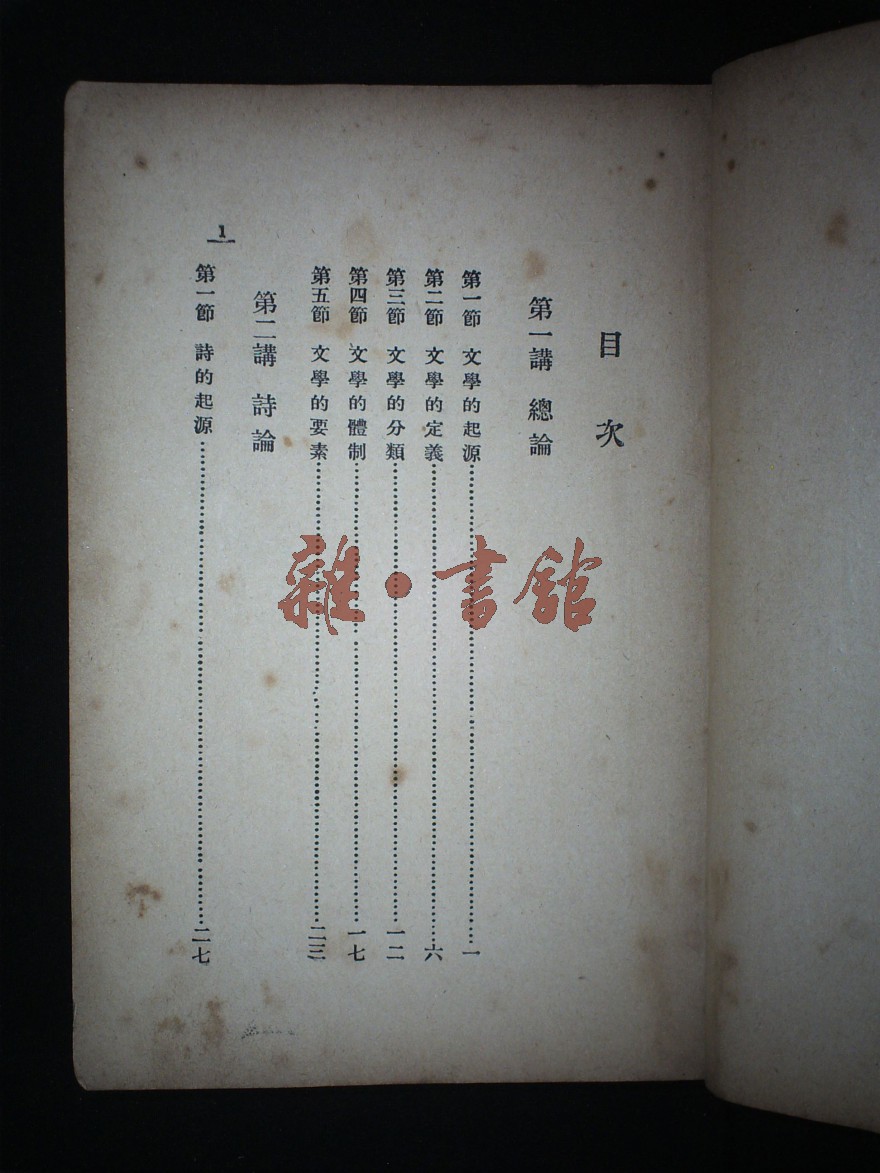 目次
第一講 總論
第一節 文學的起源……一
第二節 文學的定義……六
第三節 文學的分類……一二
第四節 文學的體制……一七
第五節 文學的要素……二三
第二講 詩論
第一節 詩的起源……二七
1
雜·書館